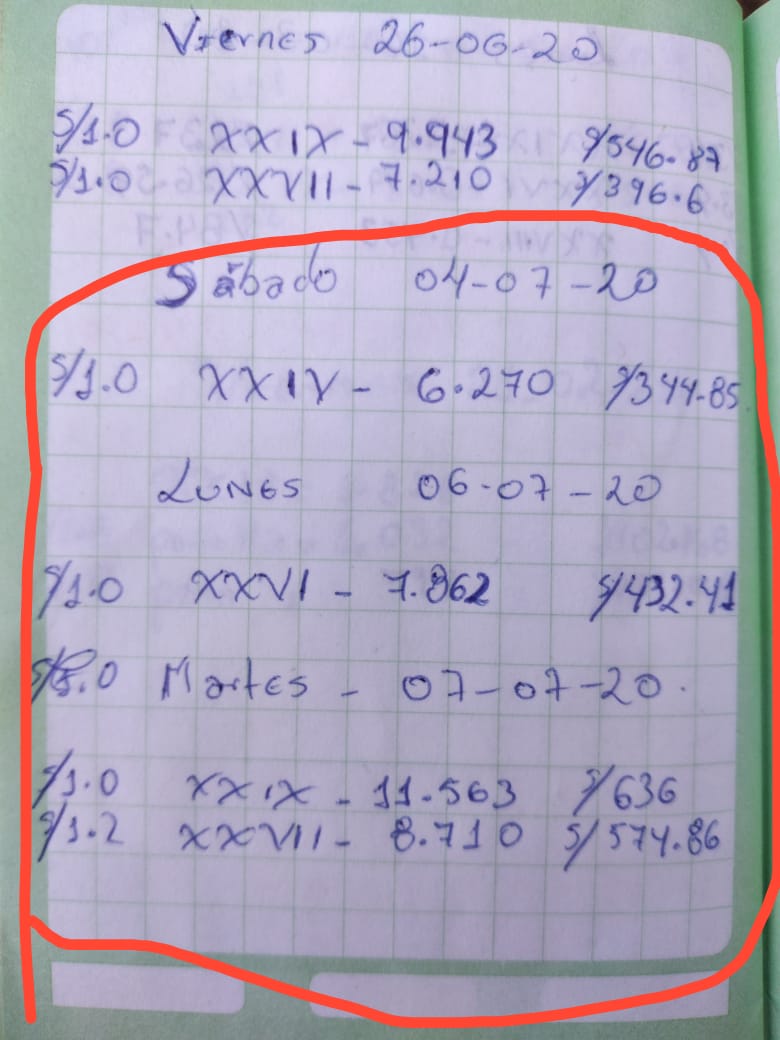 Viernes 26-06-20
S/1.0 XXIX - 9.943 S/546.87
S/1.0 XXVII - 7.210 S/396.6
Sábado 04-07-20
S/1.0 XXIV - 6.270 S/344.85
LUNES 06-07-20
S/1.0 XXVI - 7.862 S/432.41
Martes - 07-07-20.
S/1.0 XXIX - 11.563 S/636
S/1.2 XXVII - 8.710 S/574.86